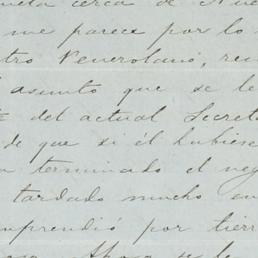 cerca de
me parece por lo
tro Venerolano, re
asunto que se le
del actual Secret
de que si él hubiese
terminado el neg
tardado mucho en
mprendió por tierr
Ahora se le